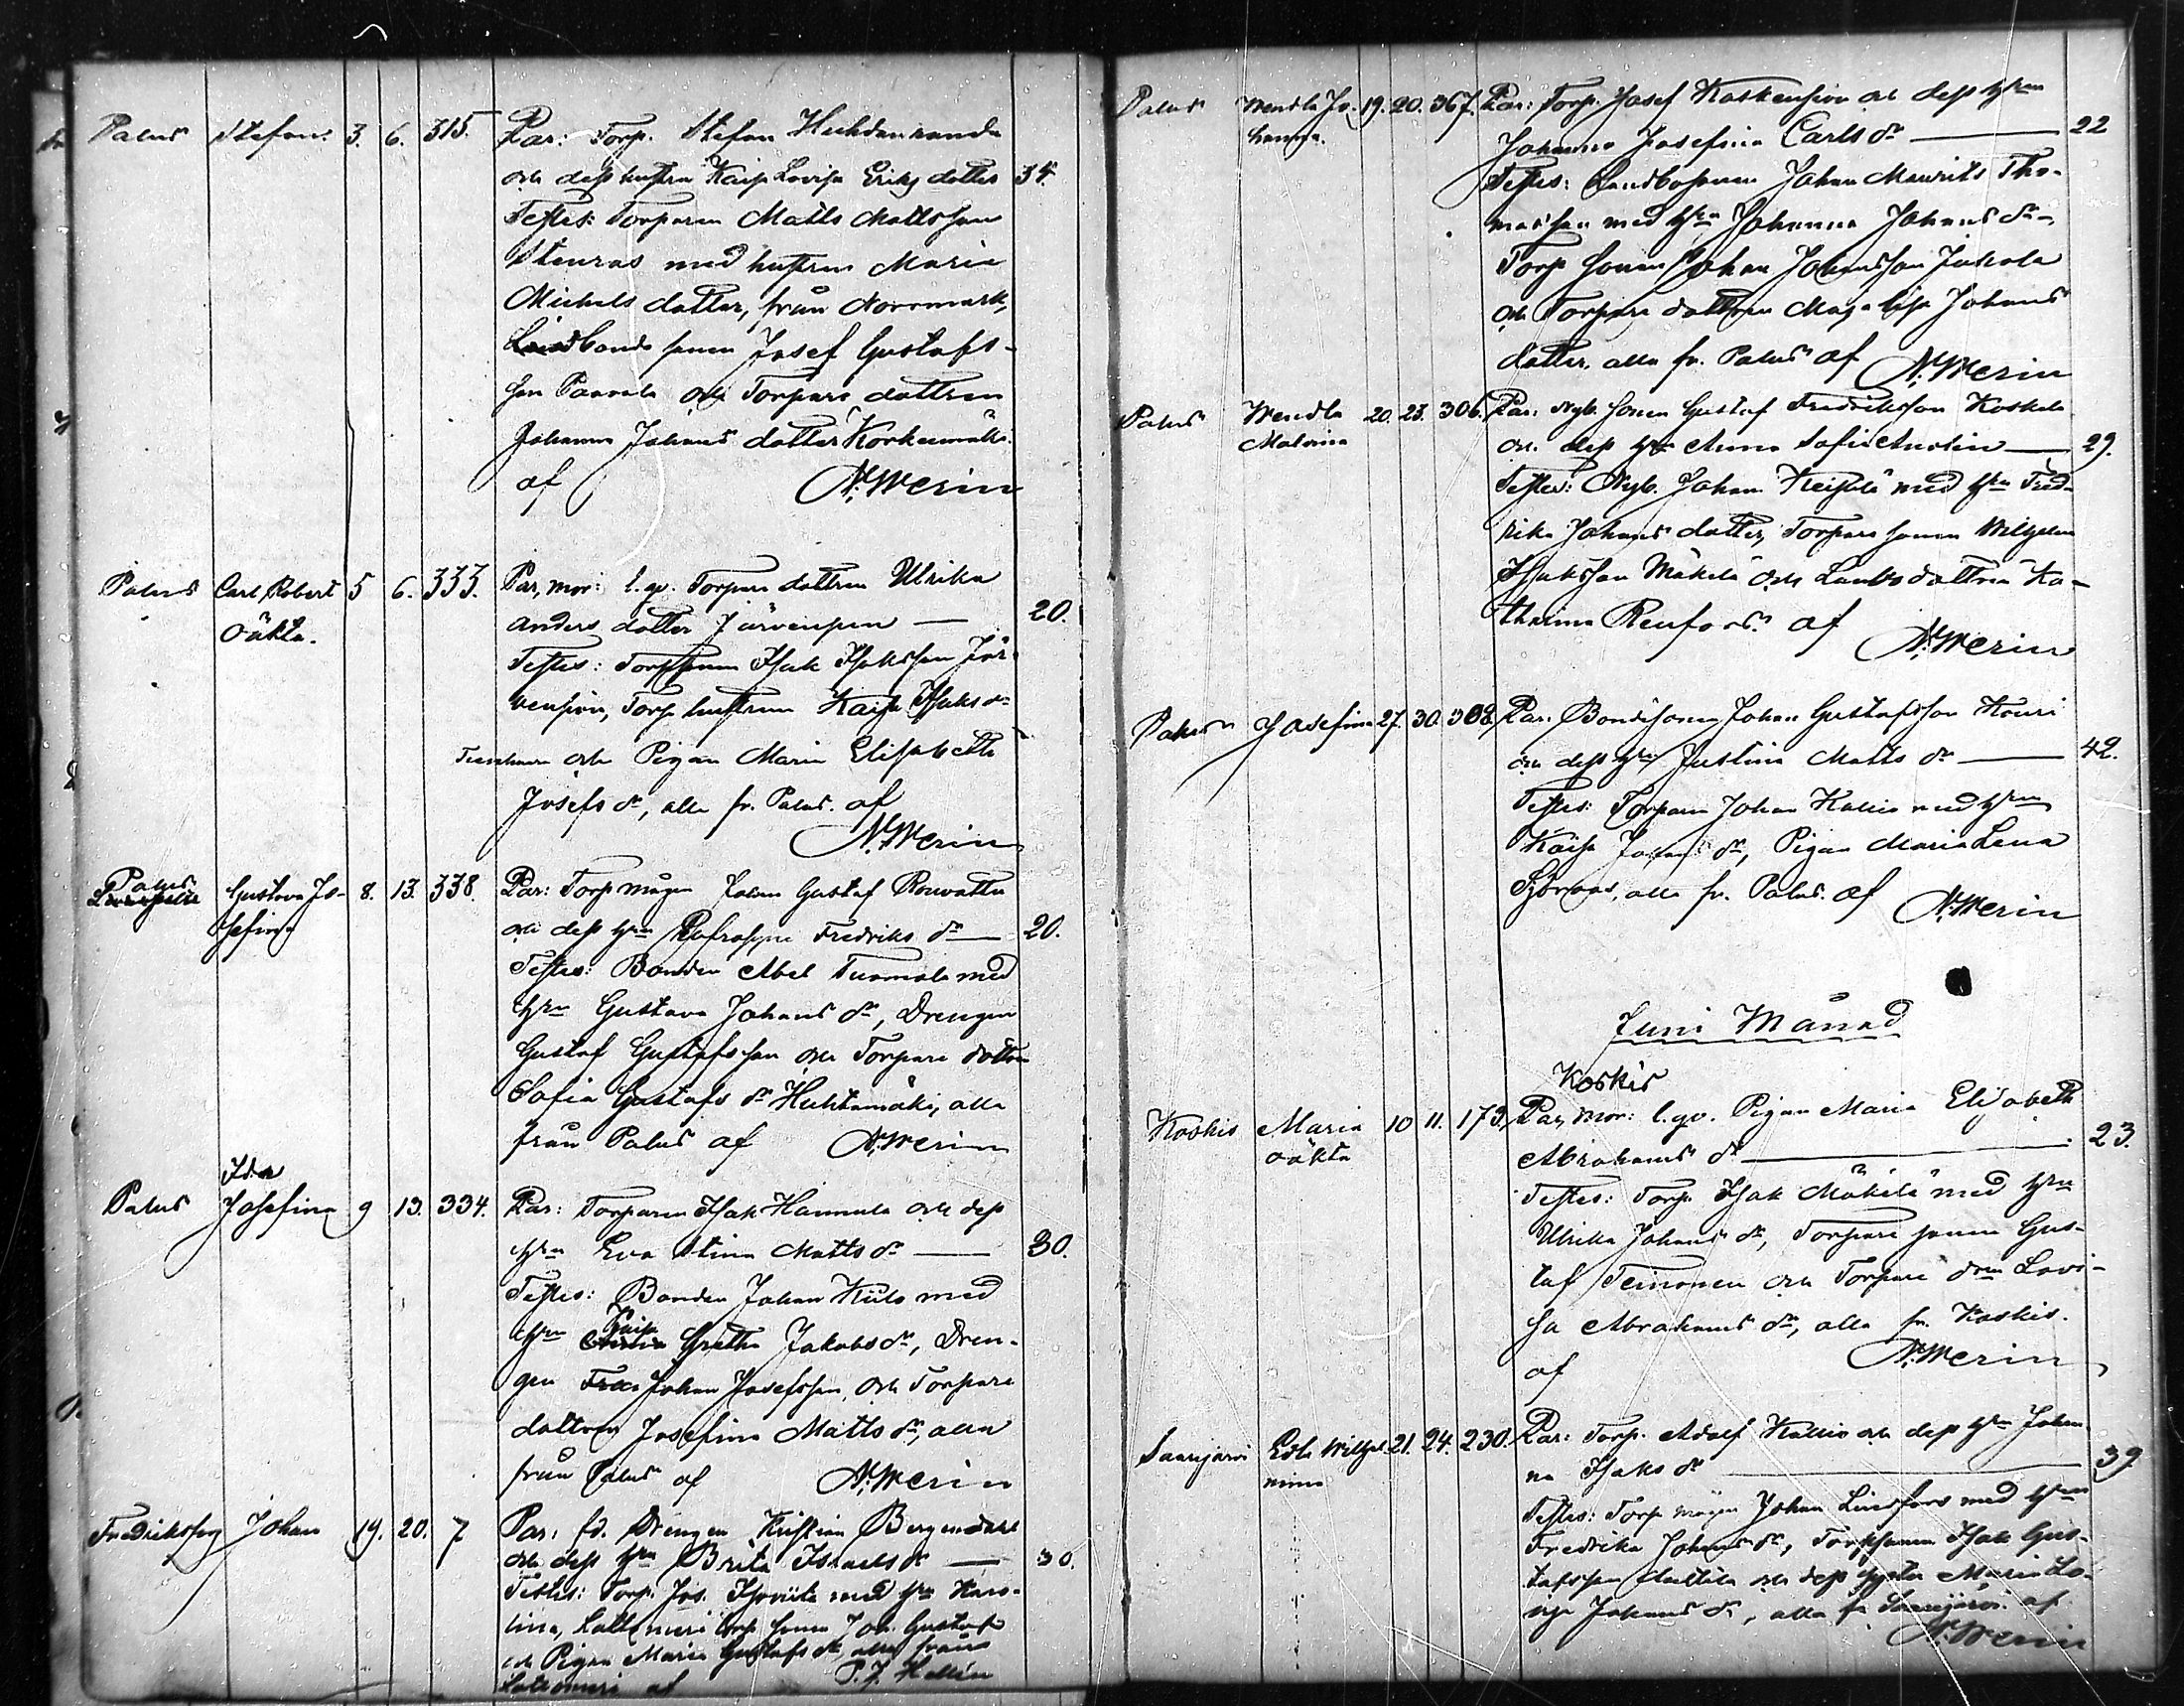 Palus Stefan. 3. 6. 315. Par: Torp. Stefan Huhdanranda
och dess hustru Kaisa Lovisa Eriks dotter 34.
Testes: Torparen Matts Mattsson
Stenros med hustrun Maria
Michels dotter, från Norrmark,
Landbonde sonen Josef Gustafs-
son Paavola och Torpare dottren
Johanna Johans dotter Korkeamäki.
af N. Merin
Palus Carl Robert 5 6. 333. Par, mor: l. qv. Torpare dottren Ulrika
oäkta. Anders dotter Järvenpen — 20.
Testes: Torp sonen Isak Isaksson Jär-
venpen, Torp hustrun Kaisa Isaks dr
och Pigan Maria Elisabeth
Josefs dr, alla fr. Palus. af
N. Merin
Palus Gustava Jo- 8. 13. 338. Par: Torp mågen Johan Gustaf
sefina och dess hru Eufrosyne Fredriks dr — 20.
Testes: Bonden Abel Tuomola med
hru Gustava Johans dr, Drengen
Gustaf Gustafsson och Torpare dottren
Sofia Gustafs dr Huhtamäki, alla
från Palus af N. Merin
Ida
Palus Josefina 9 13. 334. Par: Torparen Isak Hannula och dess
hru Eva Stina Matts dr — 30.
Testes: Bonden Johan Kiilo med
hru Kaisa Gretha Jakobs dr, Dren-
gen Johan Josefsson, och Torpare
dottren Josefina Matts dr, alla
från Palus af N. Merin
Fredriksfog Johan 19. 20. 7 Par: fd. Drengen Kristian Bergendahl
och dess hru Brita Israels dr — 30.
Testes: Torp. Jos. med hru Karo-
lina, Lattomeri Torp sonen Joh. Gustaf
och Pigan Maria Gustafs dr alla från
Lattomeri af P. J. Hellén
Palus Wendla Jo- 19. 20. 367. Par: Torp. Josef Koskension och dess hru
hanna. Johanna Josefina Carls dr — 22
Testes: Landbosonen Johan Maurits Tho-
masson med hru Johanna Johans dr,
Torp sonen Johan Johansson Jakola
och Torpare dottren Maja Lisa Johans
dotter, alla fr. Palus af N. Merin
Palus Wendla 20. 23. 306. Par: Nyb. sonen Gustaf Fredriksson Koskela
Malvina och dess hru Anna Sofia — 29.
Testes: Nyb. Johan Keisala med hru Fred-
rika Johans dotter, Torpare sonen Wilhelm
Isaksson Mäkelä och Landb dottren Ka-
tharina Renfors. af
N. Merin
Palus Josefina 27. 30. 308. Par: Bondesonen Johan Gustafsson Kouri
och dess hru Justina Matts dr — 42.
Testes: Torparen Johan Kallio med hru
Kaisa Johans dr, Pigan Maria Lena
Sjöroos, alla fr. Palus. af N. Merin
Juni Månad
Koskis
Koskis Maria 10 11. 173. Par, mor: l. qv. Pigan Maria Elisabeth
oäkta Abrahams dr — 23.
Testes: Torp. Isak Mäkelä med hru
Ulrika Johans dr, Torpare sonen Gus-
taf Teinonen och Torpare drn Lovi-
sa Abrahams dr, alla fr. Koskis.
af N. Merin
Saarijärvi Edla Wilhel- 21. 24. 230. Par: Torp. Adolf Kallio och dess hru Johan-
mina na Isaks dr — 39
Testes: Torp mågen Johan Lindfors med hru
Fredrika Johans dr, Torp sonen Isak Gus-
tafsson Anttila och dess syster Maria Lo-
visa Johans dr, alla fr Saarijärvi. af
N. Merin